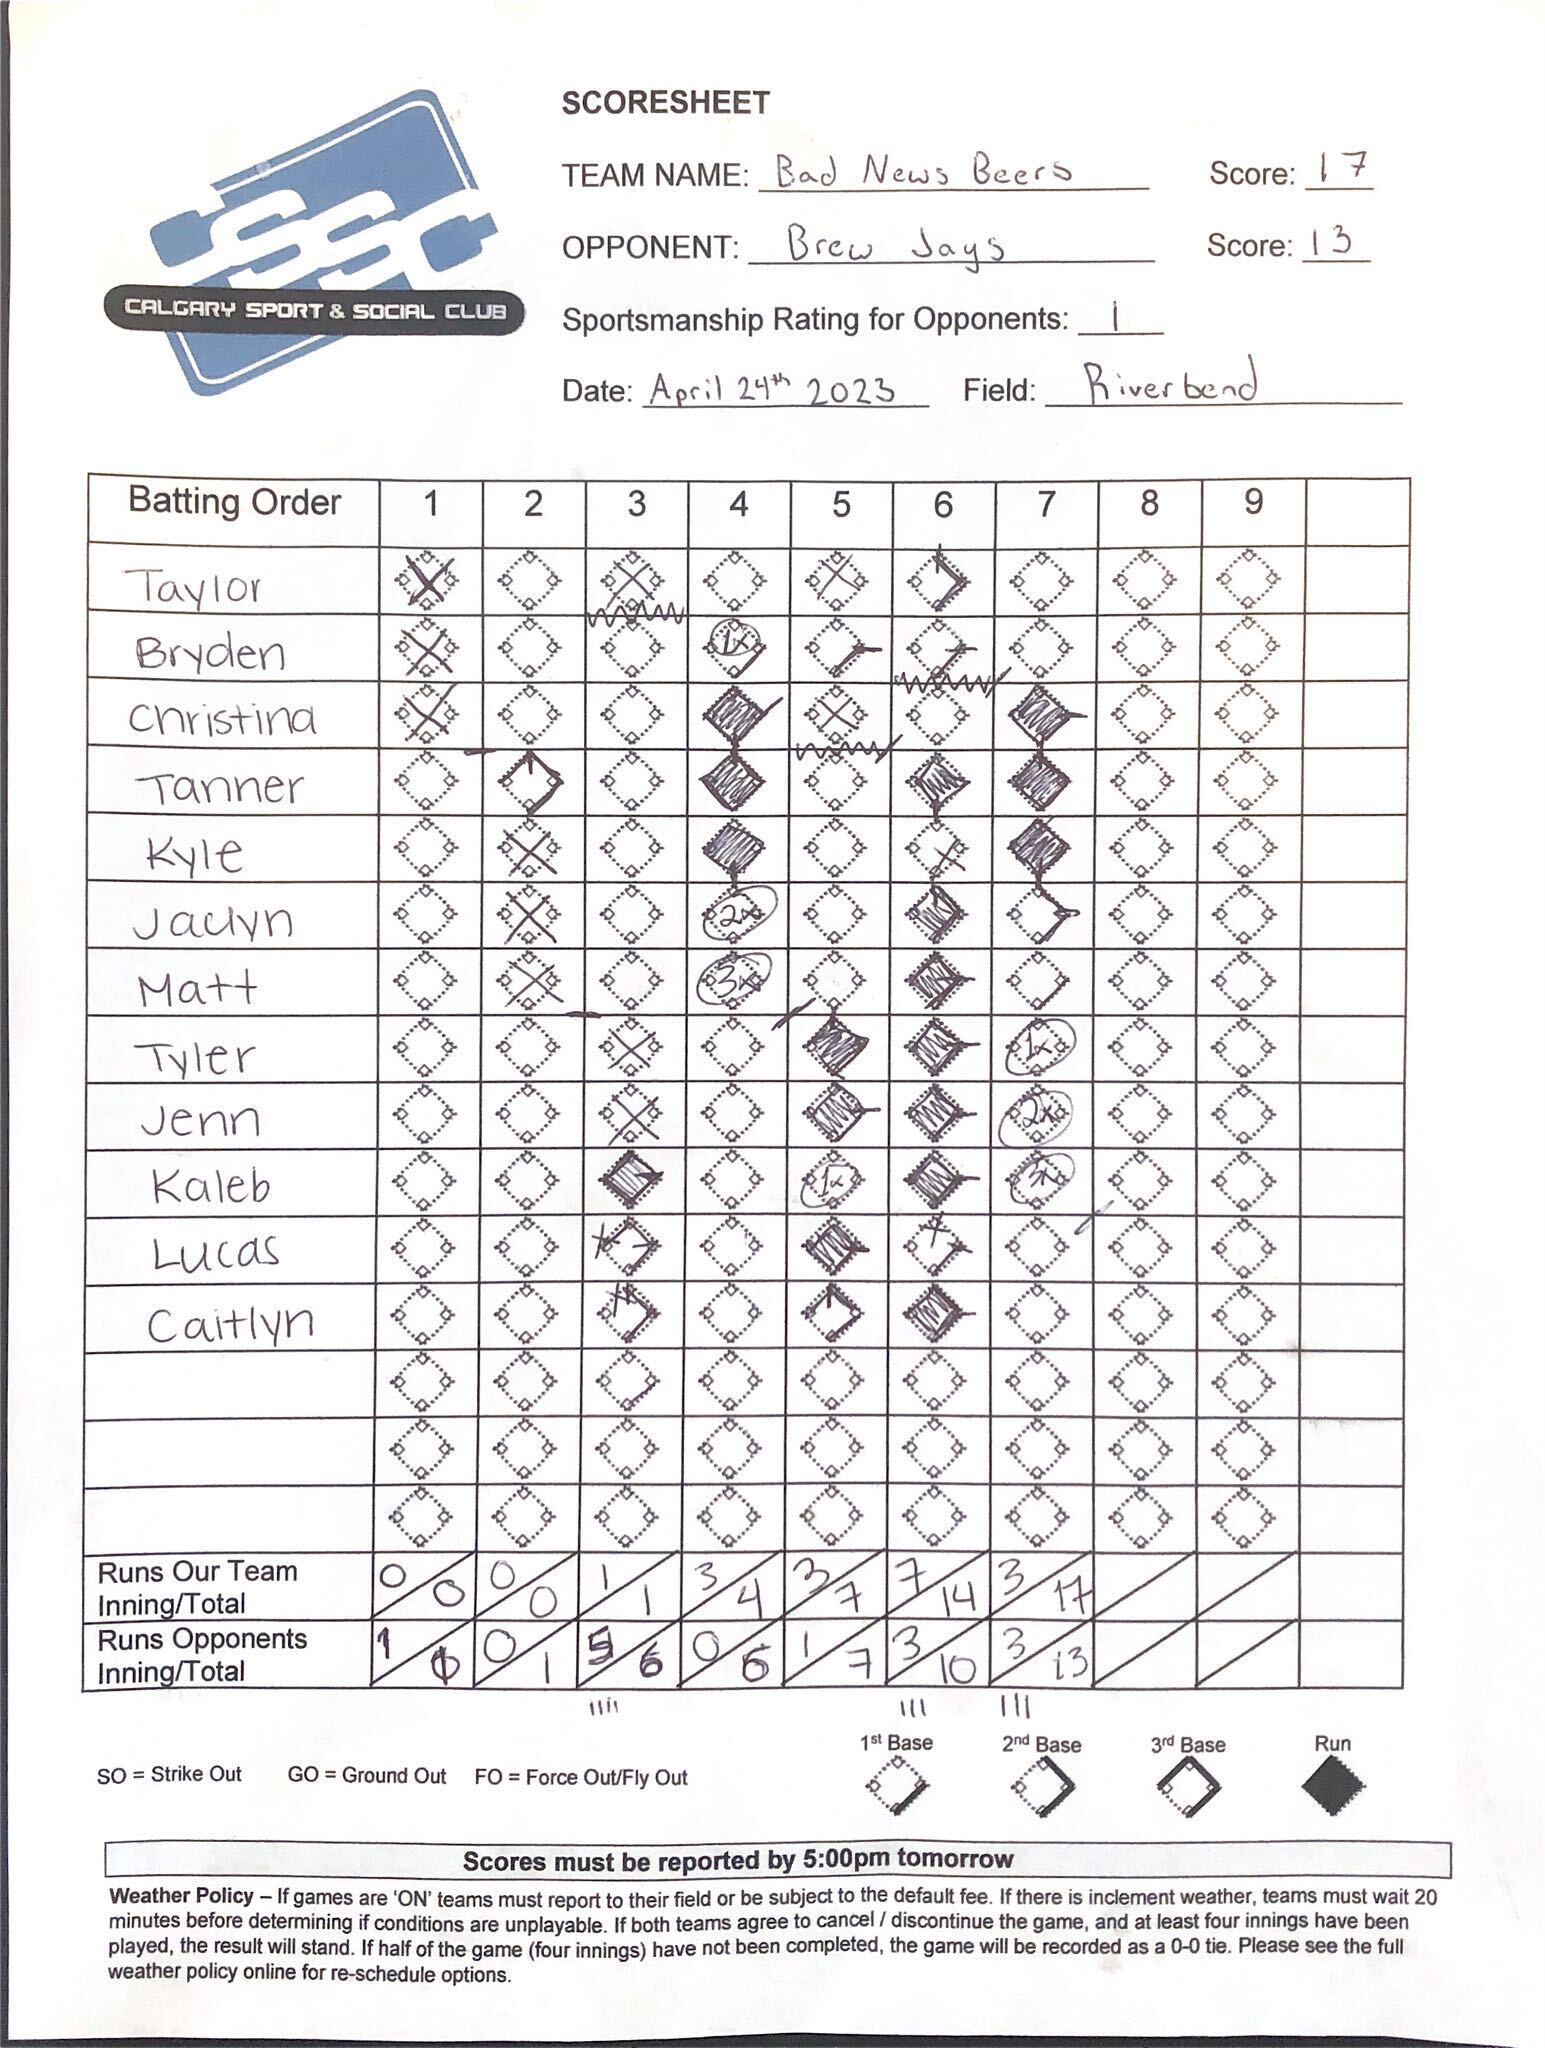 SCORESHEET
TEAM NAME: Bad News Beers Score: 17
OPPONENT: Brew Jays Score: 13
CSSC
CALGARY SPORT & SOCIAL CLUB
Sportsmanship Rating for Opponents: 1
Date: April 24th 2023 Field: Riverbend
Batting Order 1 2 3 4 5 6 7 8 9
Taylor
Bryden 1x
Christina
Tanner
Kyle
Jaclyn 2x
Matt 3x
Tyler 1x
Jenn 2x
Kaleb 1x 3x
Lucas
Caitlyn
Runs Our Team
Inning/Total 0/0 0/0 1/1 3/4 3/7 7/14 3/17
Runs Opponents
Inning/Total 1/1 0/1 5/6 0/6 1/7 3/10 3/13
1st Base 2nd Base 3rd Base Run
SO = Strike Out GO = Ground Out FO = Force Out/Fly Out
Scores must be reported by 5:00pm tomorrow
Weather Policy – If games are 'ON' teams must report to their field or be subject to the default fee. If there is inclement weather, teams must wait 20
minutes before determining if conditions are unplayable. If both teams agree to cancel / discontinue the game, and at least four innings have been
played, the result will stand. If half of the game (four innings) have not been completed, the game will be recorded as a 0-0 tie. Please see the full
weather policy online for re-schedule options.